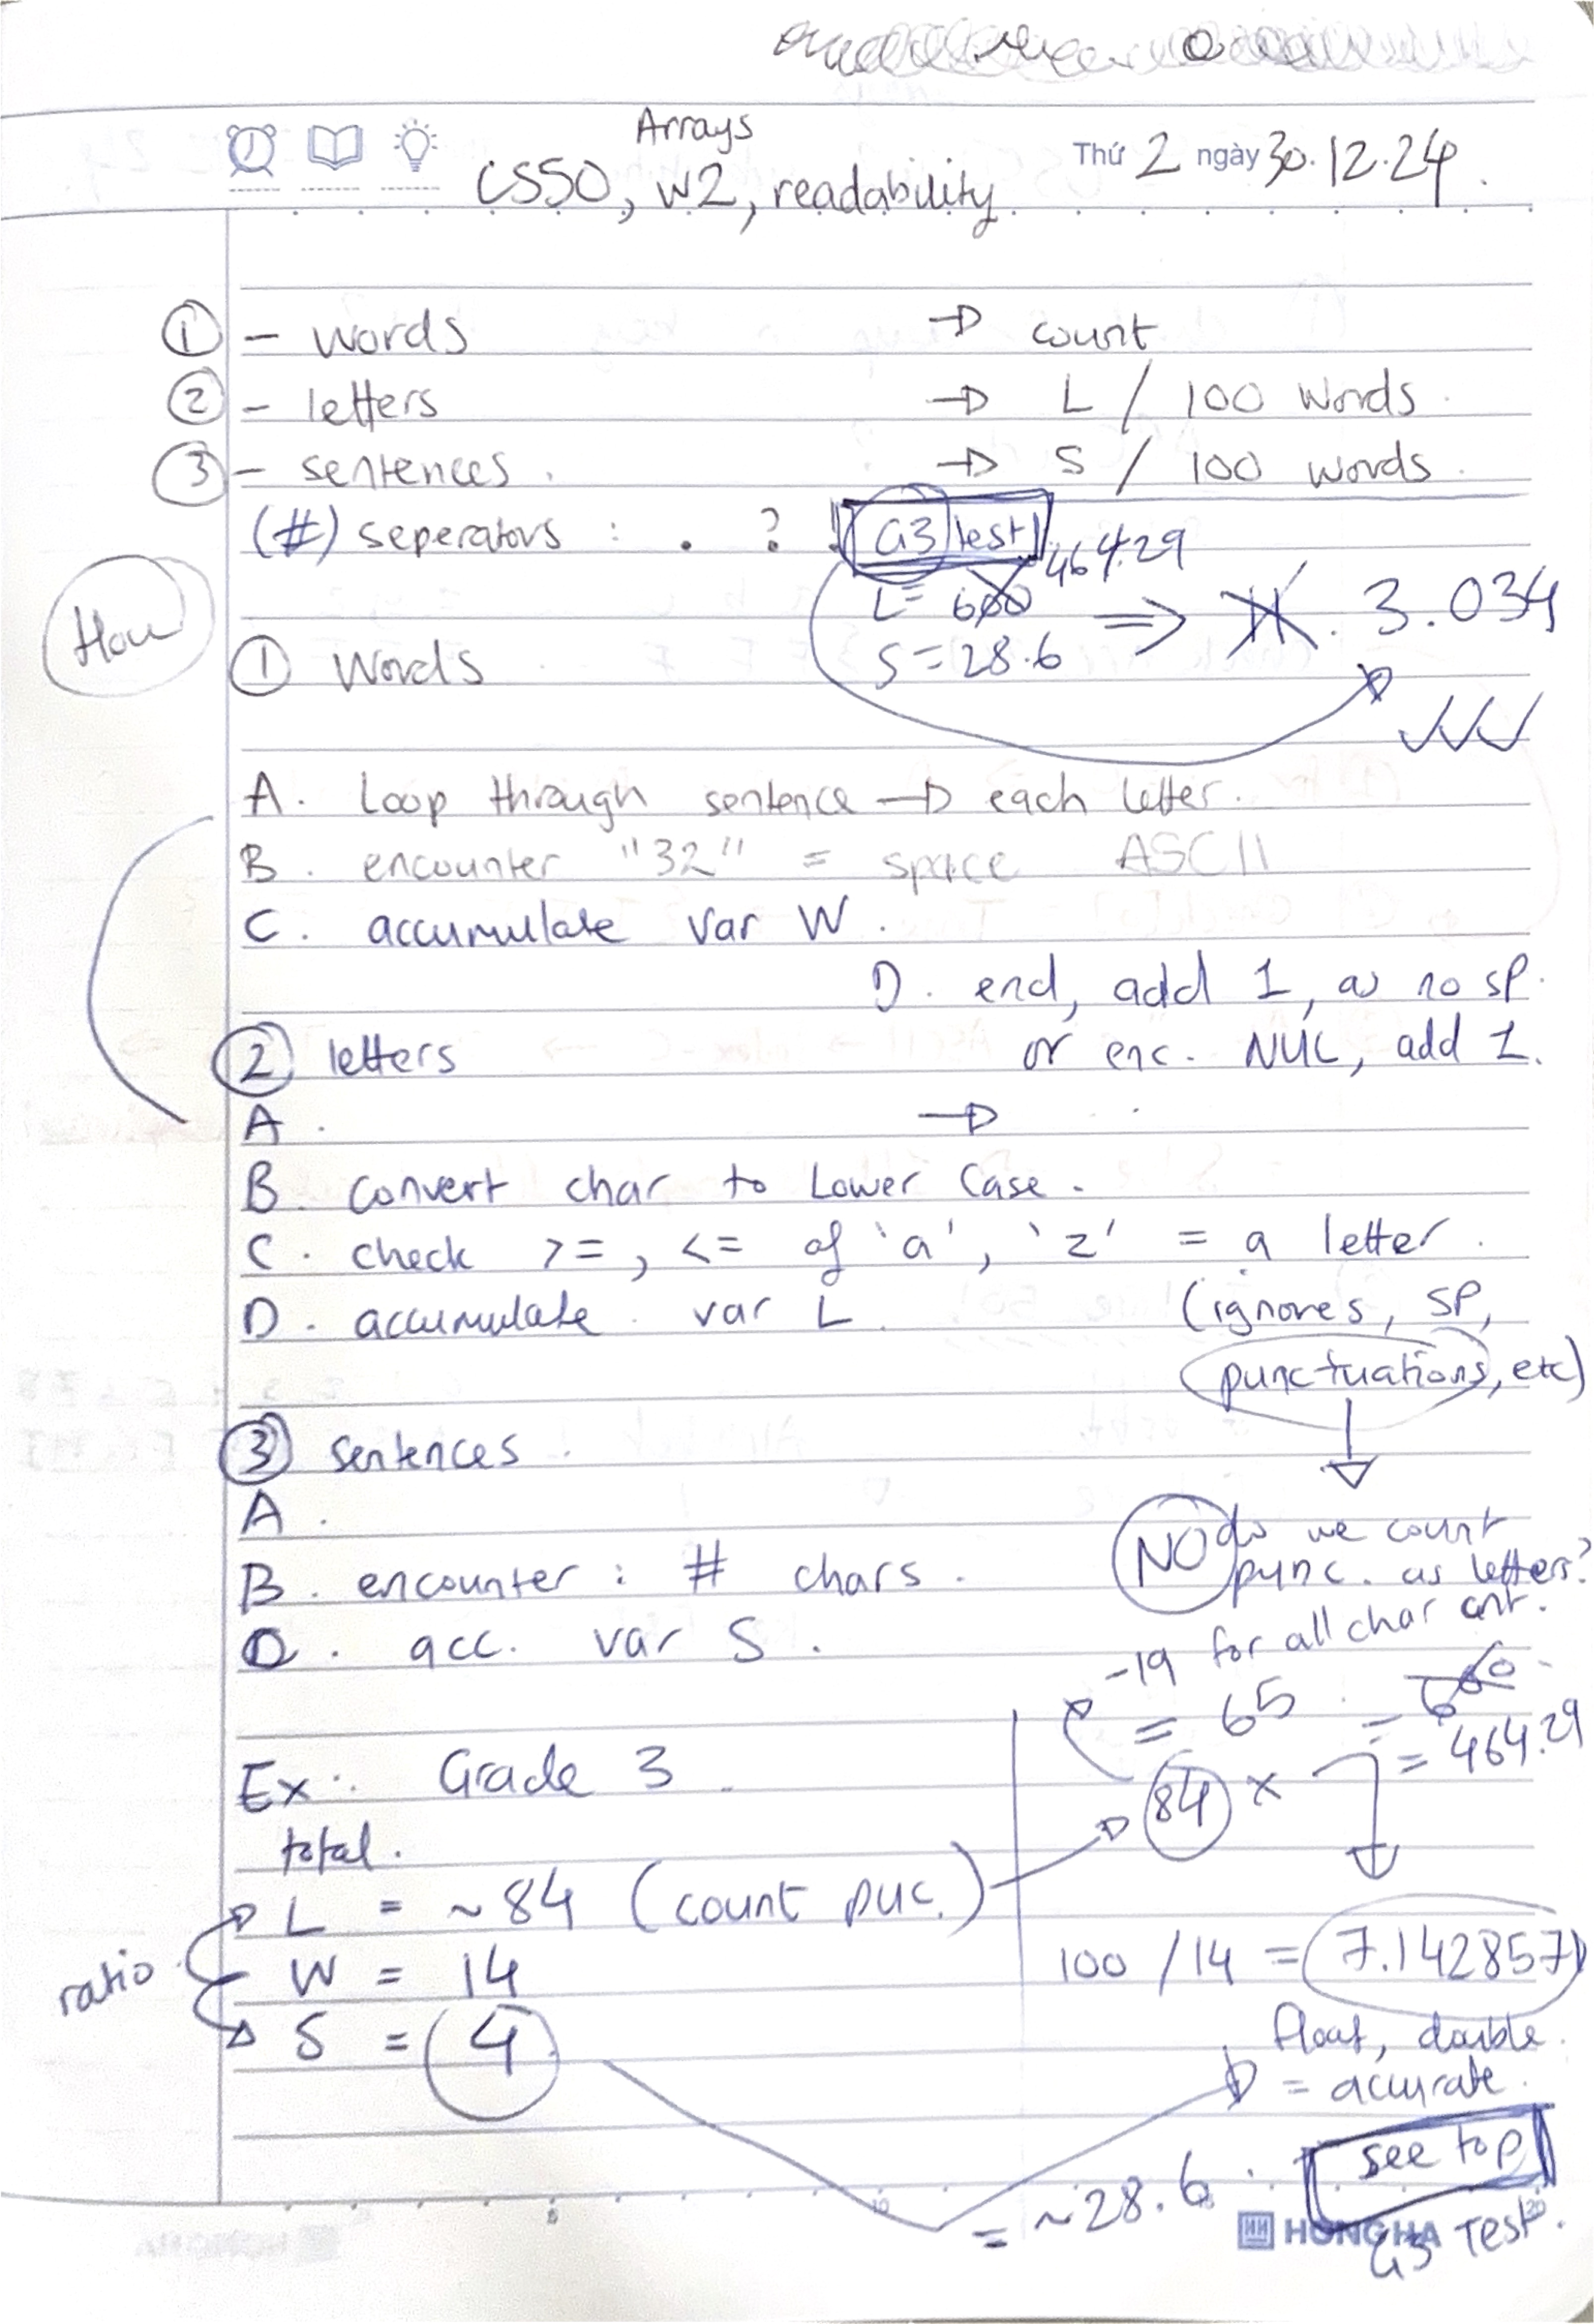 Arrays
Thứ 2 ngày 30.12.24.
CS50, w2, readability
① - words → count
② - letters → L / 100 words.
③ - sentences. → S / 100 words.
(#) seperators : . ? ! G3 test
L = 600 464.29
S = 28.6 ⇒ 11. 3.034
How
① Words
A. Loop through sentence → each letter.
B. encounter "32" = space ASCII
C. accumulate var W.
D. end, add 1, as no sp.
or enc. NUL, add 1.
② letters
A. →
B. convert char to Lower Case.
C. check >=, <= of 'a', 'z' = a letter.
D. accumulate var L. (ignores, SP,
punctuations, etc)
③ sentences.
A.
B. encounter : # chars.
D. acc. var S.
NO do we count
punc. as letters?
-19 for all char cnt.
= 65 = 600
84 × = 464.29
Ex: Grade 3.
total.
L = ~84 (count puc.)
ratio W = 14
S = 4
100 / 14 = 7.142857
float, double.
= accurate.
= ~28.6. see top
HONG HA
G3 Test.